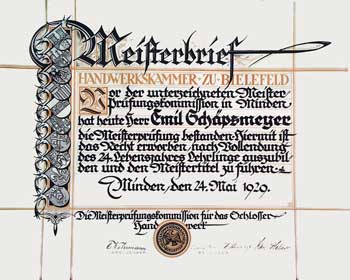 Meisterbrief
HANDWERKSKAMMER · ZU · BIELEFELD
Vor der unterzeichneten Meister
Prüfungskommission in Minden
hat heute Herr Emil Schäpsmeyer
die Meisterprüfung bestanden. Hiermit ist
das Recht erworben, nach Vollendung
des 24. Lebensjahres Lehrlinge auszubil
den und den Meistertitel zu führen.
Minden, den 24. Mai 1929.
Die Meisterprüfungskommission für das Schlosser
Handwerk